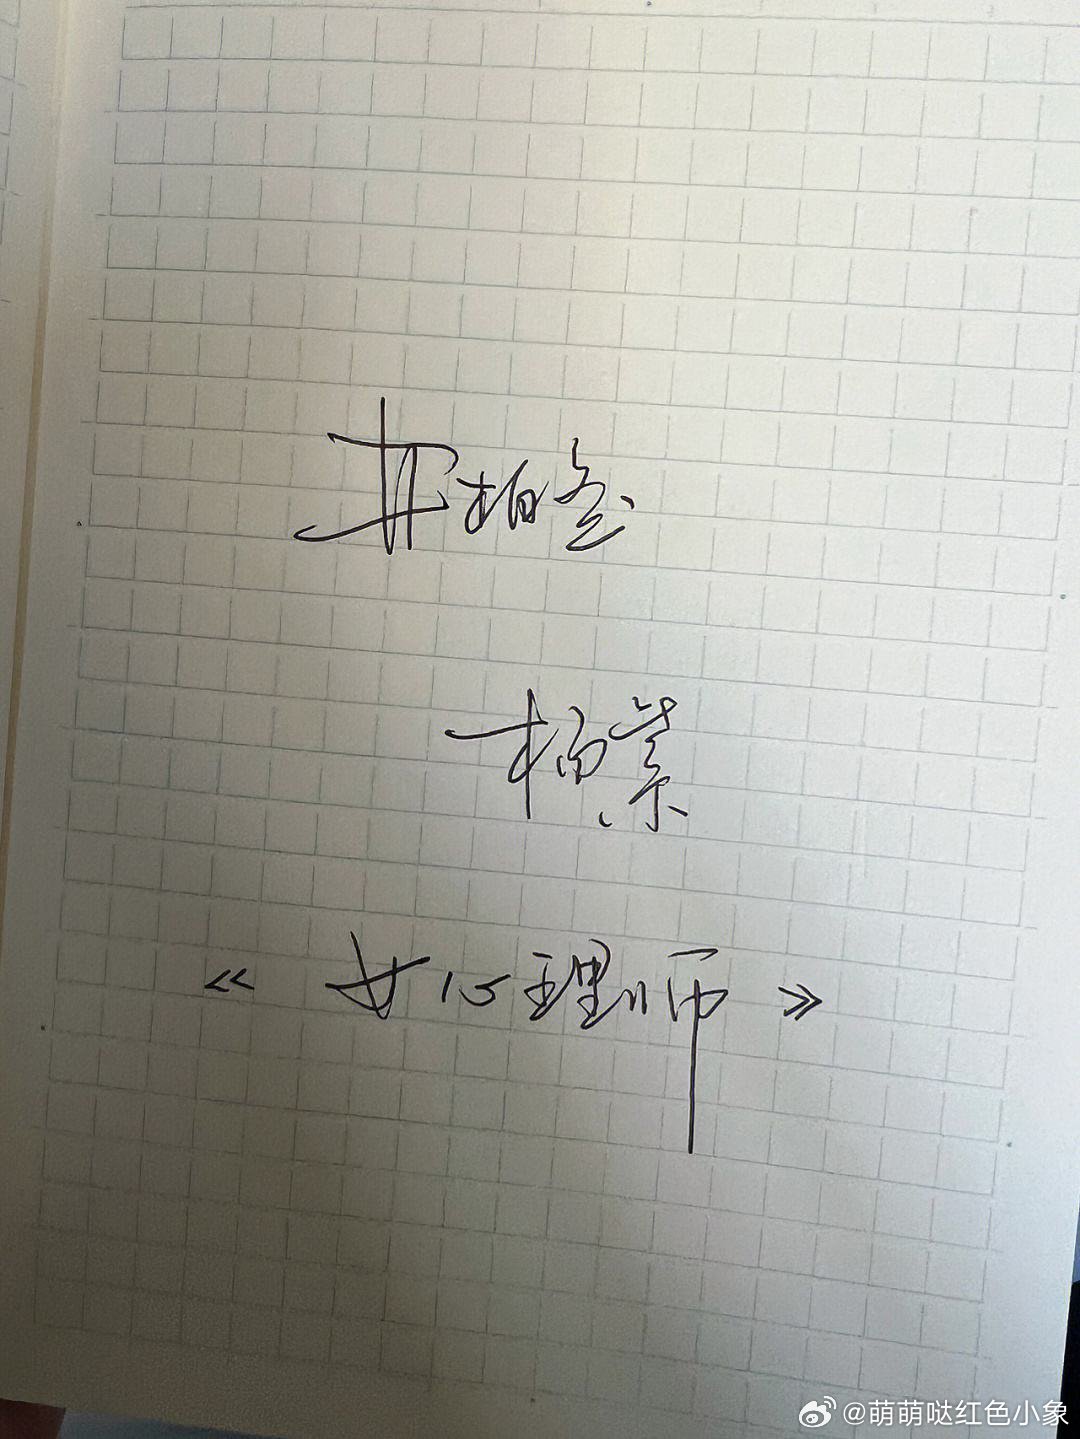 井柏然
杨紫
《女心理师》
@萌萌哒红色小象